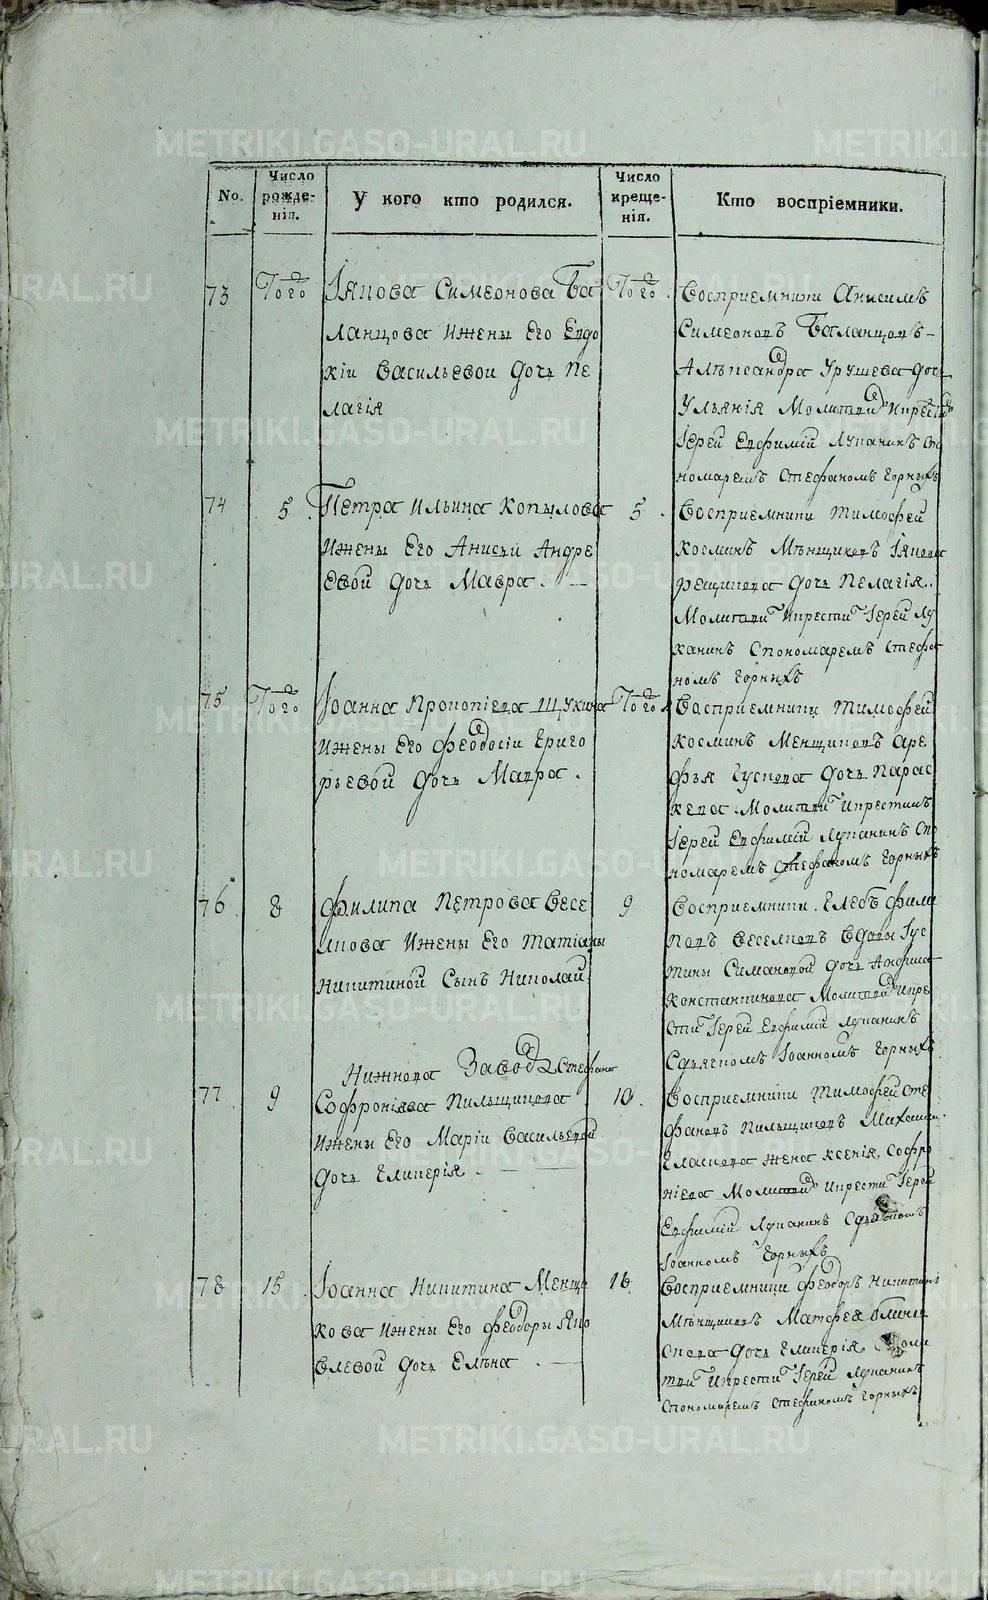 METRIKI.GASO-URAL.RU
No.
Число рожде-нія.
У кого кто родился.
Число креще-нія.
Кто воспріемники.
73
Того
Іякова Симеонова Ба
ланцова Ижены Его Евдо
кіи Васильевои дочь Пе
лагія
Того
Восприемники Анисимъ
Симеоновъ Баланцовъ
Алѣксандра Урушева дочь
Ульянія Молитвовалъ Икрестилъ
Іерей Евфимій Лукани<text>нъ Спо
номаремъ Стефаномъ Горныхъ
74
5
Петра Ильина Копылова
Ижены Его Анисьи Андре
евой дочь Мавра.
5
Восприемники Тимофей
Косминъ Мѣнщиковъ Іякова
рещикова дочь Пелагія.
Молитви Икрести Іерей Лу
канинъ Спономаремъ Стефа
номъ Горныхъ
75
Того
Іоанна Прокопіева Щукина
Ижены Его Феодосіи Григо
рьевой дочь Мавра.
Того
Восприемники Тимофей
Косминъ Менщиковъ Аре
фья Гускова дочь Парас
кева. Молитви Икрестилъ
Іерей Евфимій Луканинъ Спо
номаремъ Стефаномъ Горныхъ
76
8
Филипа Петрова Весе
лкова Ижены Его Татіаны
Никитиной Сынъ Николай
9
Восприемники. Глебъ Фили
повъ Веселковъ Вдовы Іус
тины Симановой дочь Анфиса
Константинова Молитвовалъ Икре
сти Іерей Евфимій Луканинъ
Сдьячкомъ Іоанномъ Горныхъ
Нижнева Завода Стефана
77
9
Софроніева Пильщикова
Ижены Его Маріи Васильевой
дочь Гликерія.
10.
Восприемники Тимофей Сте
фановъ Пильщиковъ Михаила
Гласкова жена Ксенія Софро
ніева Молитвовалъ Икрести Іерей
Евфимій Луканинъ Сдьячкомъ
Іоанномъ Горныхъ
78
15
Іоанна Никитина Менщи
кова Ижены Его Феодоры Яко
влевой дочь Елѣна.
16
Восприемники Феодоръ Никитинъ
Мѣнщиковъ Матфея
дочь Гликерія Моли
тви Икрести Іерей Луканинъ
Спономаремъ Стефаномъ Горныхъ